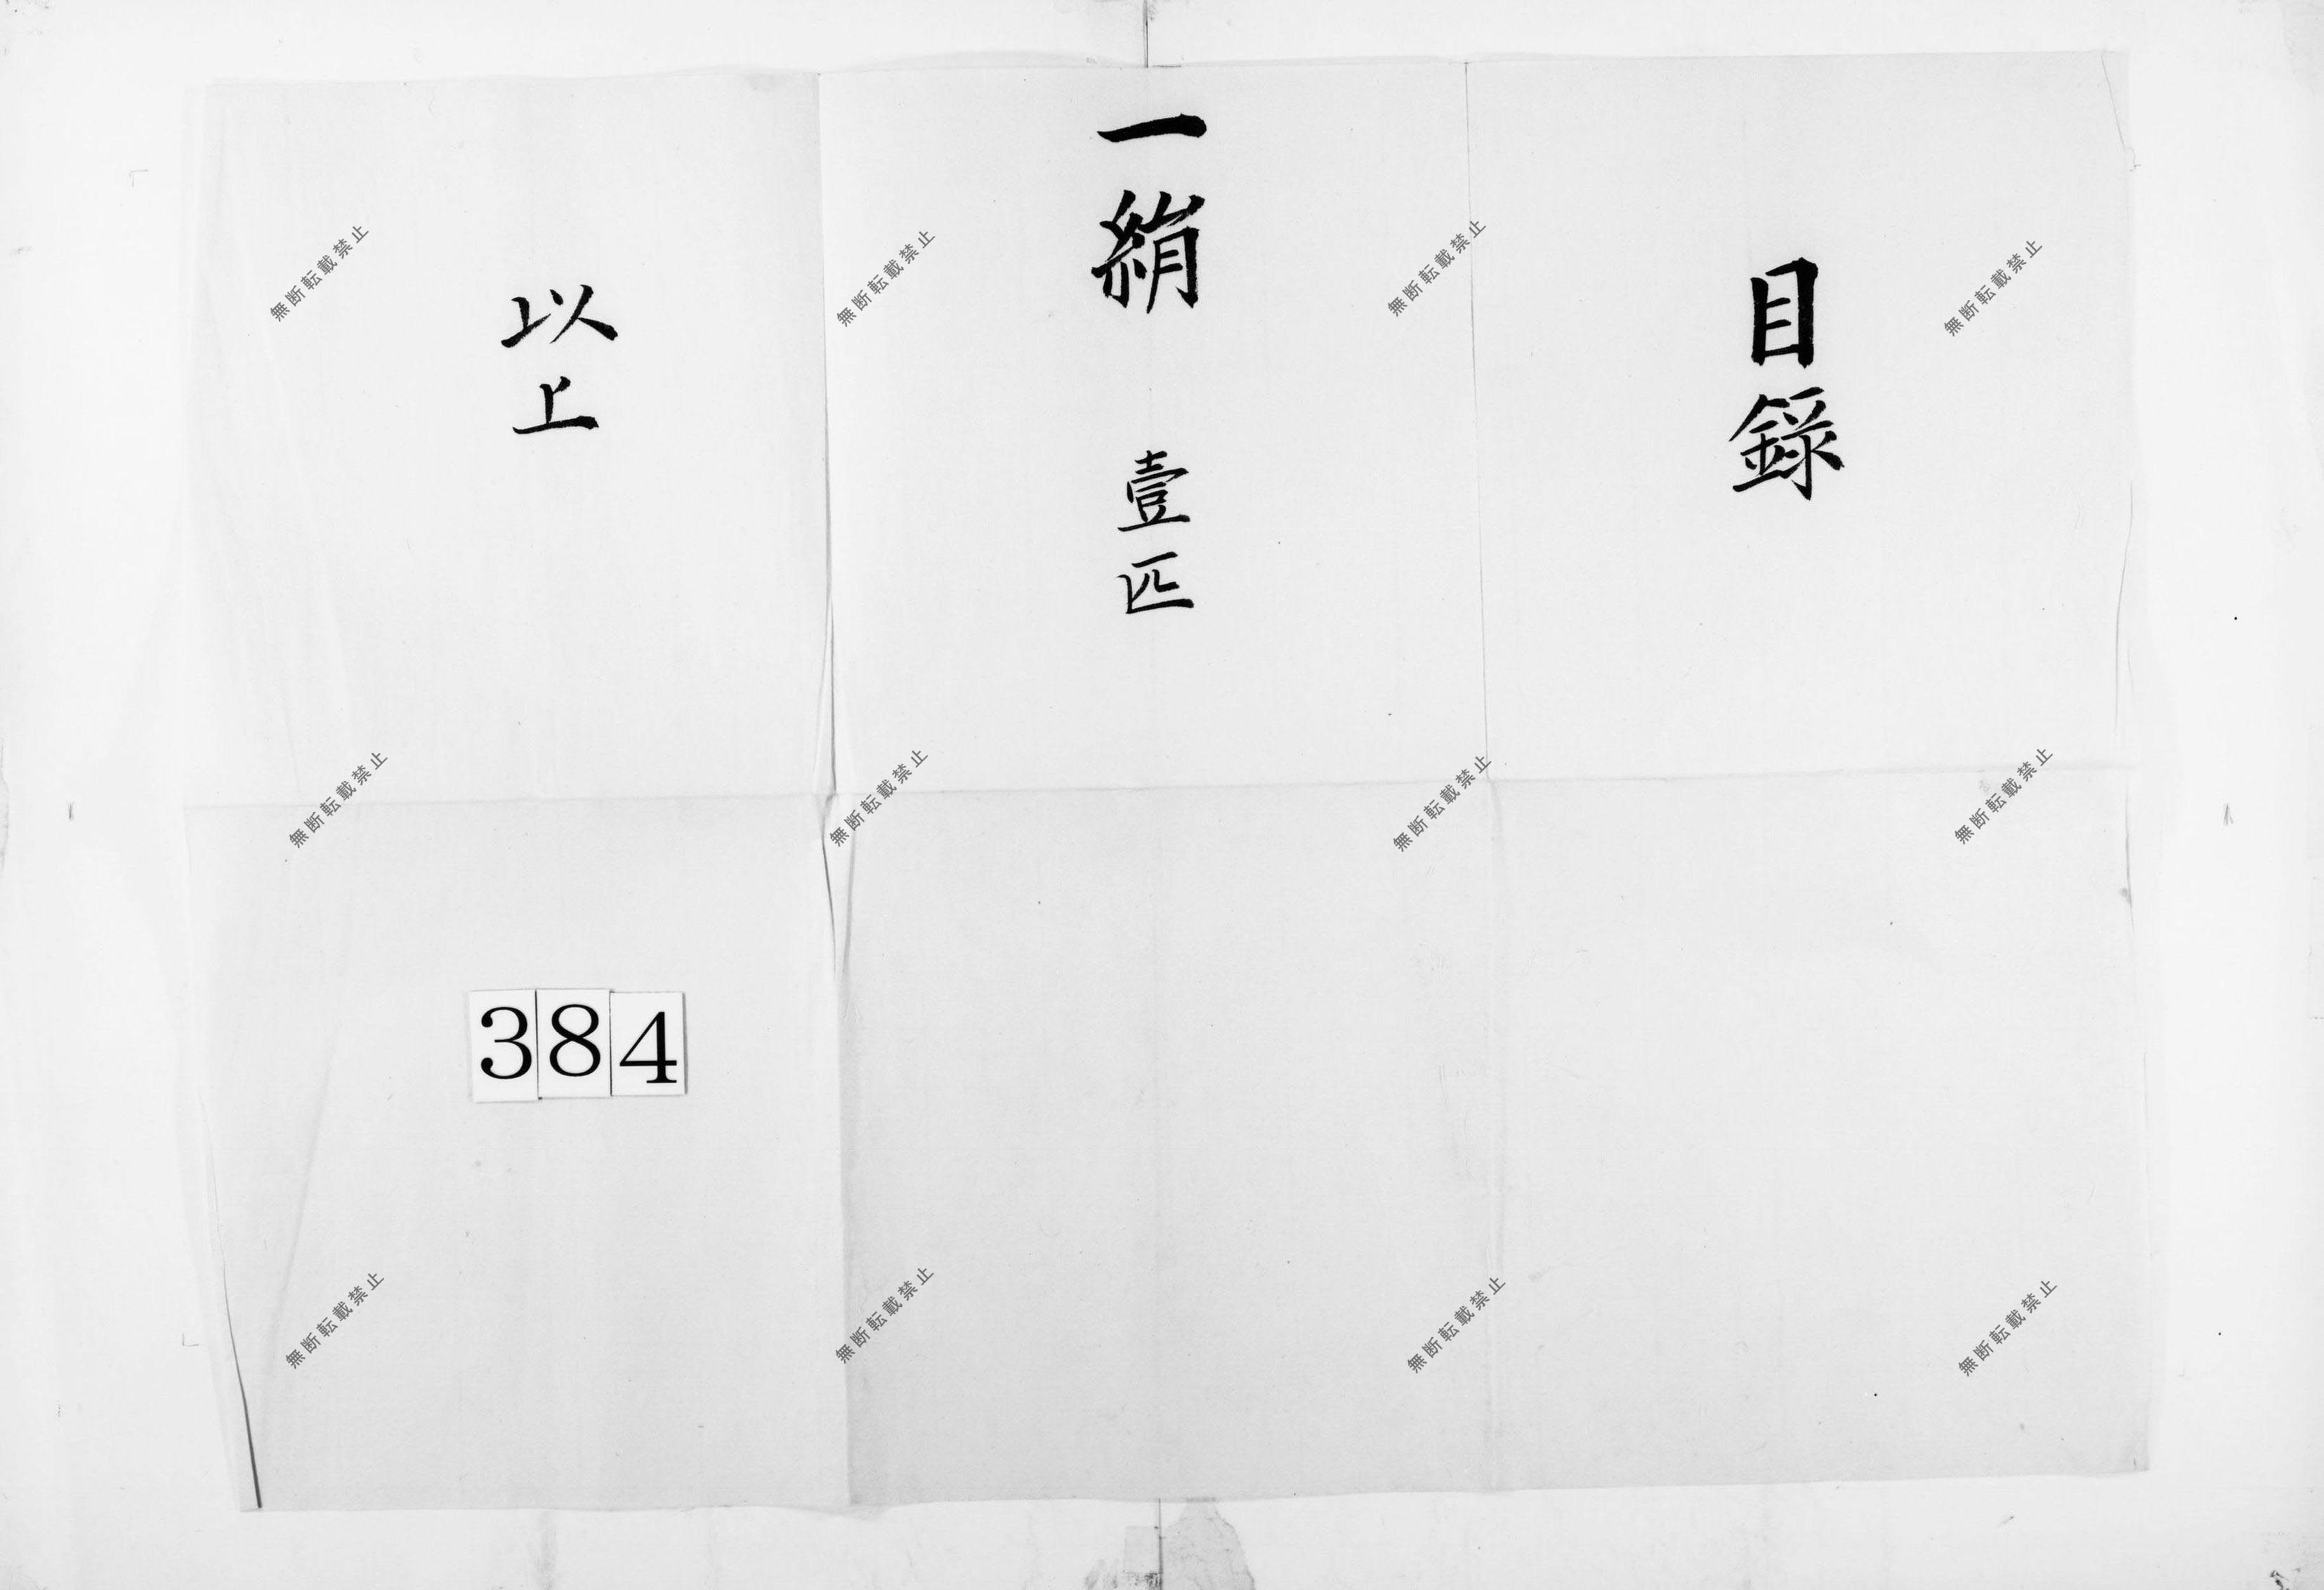 目錄
一絹 壹匹
以上
384
無断転載禁止
無断転載禁止
無断転載禁止
無断転載禁止
無断転載禁止
無断転載禁止
無断転載禁止
無断転載禁止
無断転載禁止
無断転載禁止
無断転載禁止
無断転載禁止